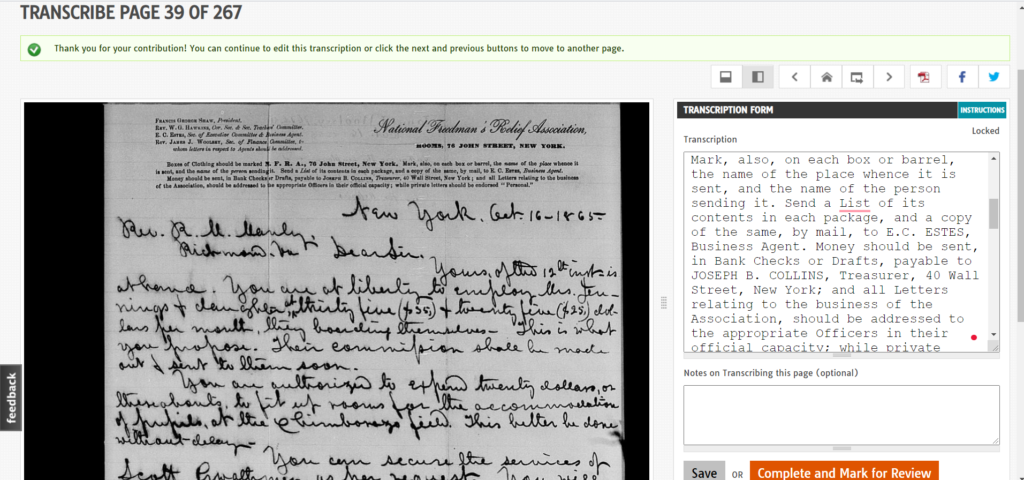 TRANSCRIBE PAGE 39 OF 267
Thank you for your contribution! You can continue to edit this transcription or click the next and previous buttons to move to another page.
FRANCIS GEORGE SHAW, President.
REV. W. G. HAWKINS, Cor. Sec. & Sec. Teachers' Committee.
E. C. ESTES, Sec. of Executive Committee & Business Agent.
REV. JAMES J. WOOLSEY, Sec. of Finance Committee, to
whom letters in respect to Agents should be addressed.
National Freedman's Relief Association,
ROOMS, 76 JOHN STREET, NEW YORK.
Boxes of Clothing should be marked N. F. R. A., 76 John Street, New York. Mark, also, on each box or barrel, the name of the place whence it
is sent, and the name of the person sending it. Send a List of its contents in each package, and a copy of the same, by mail, to E. C. ESTES, Business Agent.
Money should be sent, in Bank Checks or Drafts, payable to JOSEPH B. COLLINS, Treasurer, 40 Wall Street, New York; and all Letters relating to the business
of the Association, should be addressed to the appropriate Officers in their official capacity; while private letters should be endorsed "Personal."
New York. Oct. 16-1865-
Rev. R. M. Manly,
Richmond. Va Dear Sir.
Yours, of the 12th inst is
at hand. You are at liberty to employ Mrs. Jen-
nings & daughter, at thirty five ($35,) & twenty five ($25,) dol-
lars per month, they boarding themselves- This is what
you propose. Their commission shall be made
out & sent to them soon.
You are authorized to expend twenty dollars, or
thereabouts, to fit up rooms for the accommodation
of pupils, at the Chimborazo field. This better be done
without delay-
You can secure the services of
Scott
as her request. You will
TRANSCRIPTION FORM
INSTRUCTIONS
Locked
Transcription
Mark, also, on each box or barrel,
the name of the place whence it is
sent, and the name of the person
sending it. Send a List of its
contents in each package, and a copy
of the same, by mail, to E.C. ESTES,
Business Agent. Money should be sent,
in Bank Checks or Drafts, payable to
JOSEPH B. COLLINS, Treasurer, 40 Wall
Street, New York; and all Letters
relating to the business of the
Association, should be addressed to
the appropriate Officers in their
official capacity; while private
Notes on Transcribing this page (optional)
Save OR Complete and Mark for Review
feedback